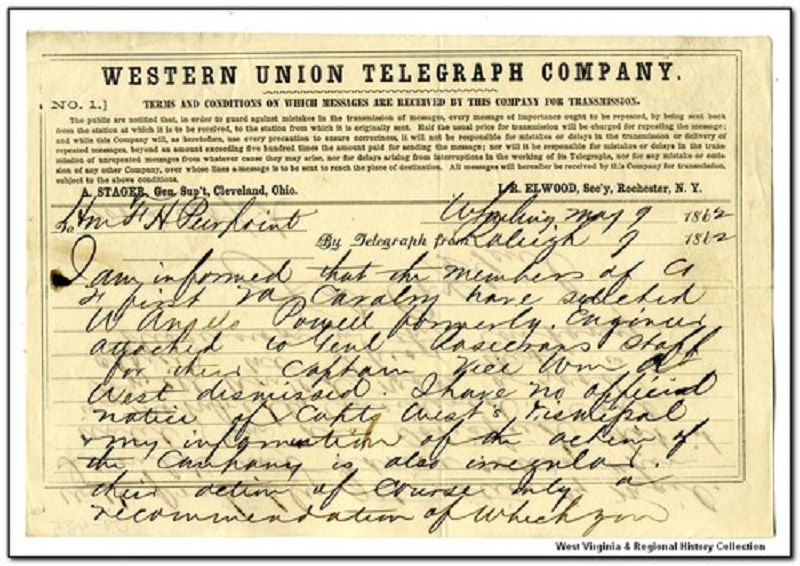 WESTERN UNION TELEGRAPH COMPANY.
NO. 1.]
TERMS AND CONDITIONS ON WHICH MESSAGES ARE RECEIVED BY THIS COMPANY FOR TRANSMISSION.
The public are notified that, in order to guard against mistakes in the transmission of messages, every message of importance ought to be repeated, by being sent back
from the station at which it is to be received, to the station from which it is originally sent. Half the usual price for transmission will be charged for repeating the message;
and while this Company will, as heretofore, use every precaution to ensure correctness, it will not be responsible for mistakes or delays in the transmission or delivery of
repeated messages, beyond an amount exceeding five hundred times the amount paid for sending the message; nor will it be responsible for mistakes or delays in the trans-
mission of unrepeated messages from whatever cause they may arise, nor for delays arising from interruptions in the working of its Telegraphs, nor for any mistake or omis-
sion of any other Company, over whose lines a message is to be sent to reach the place of destination. All messages will hereafter be received by this Company for transmission,
subject to the above conditions.
A. STAGER, Gen. Sup't, Cleveland, Ohio.
I. R. ELWOOD, Sec'y, Rochester, N. Y.
Wheeling May 9 1862
To Hon F H Peirpoint
By Telegraph from Raleigh 9 1862
I am informed that the members of Co
first Va Cavalry have selected
W Angelo Powell formerly Engineer
attached to Genl Rosecrans staff
for their Captain vice Wm A
West dismissed. I have no official
notice of Capts West's dismissal
& my information of the action of
the Company is also irregular.
their action of course only a
recommendation of which you
West Virginia & Regional History Collection